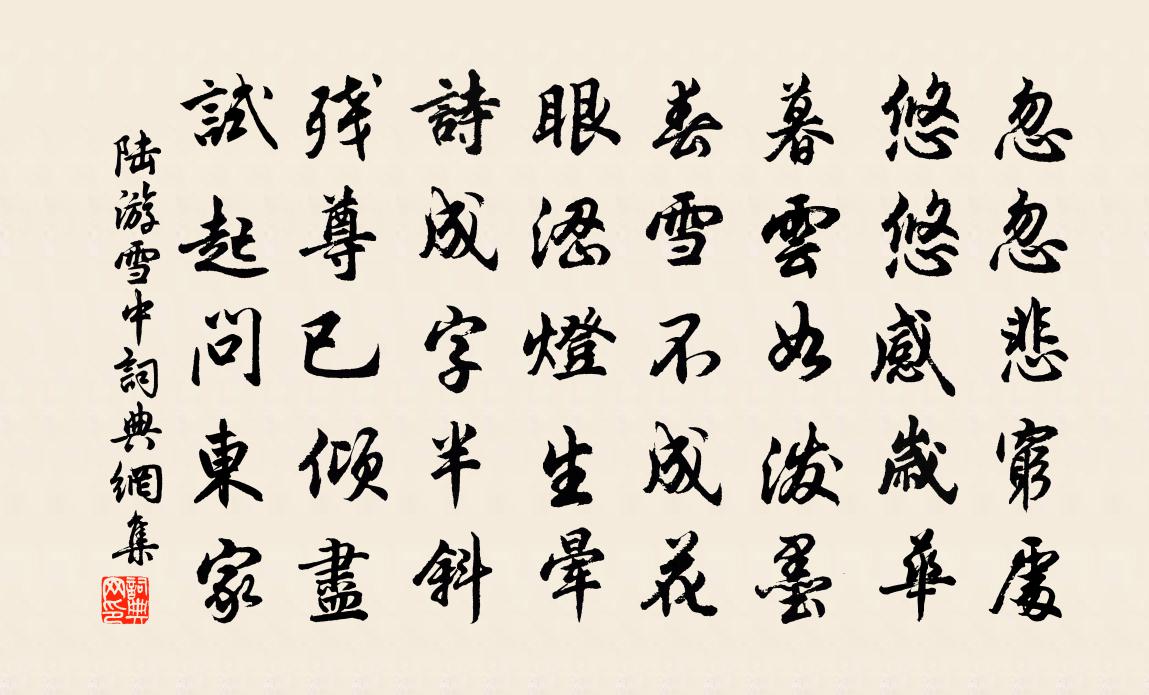 忽忽悲窮處
悠悠感歲華
暮雲如潑墨
春雪不成花
眼澀燈生暈
詩成字半斜
殘尊已傾盡
試起問東家
陆游雪中詞典網集
詞典網印